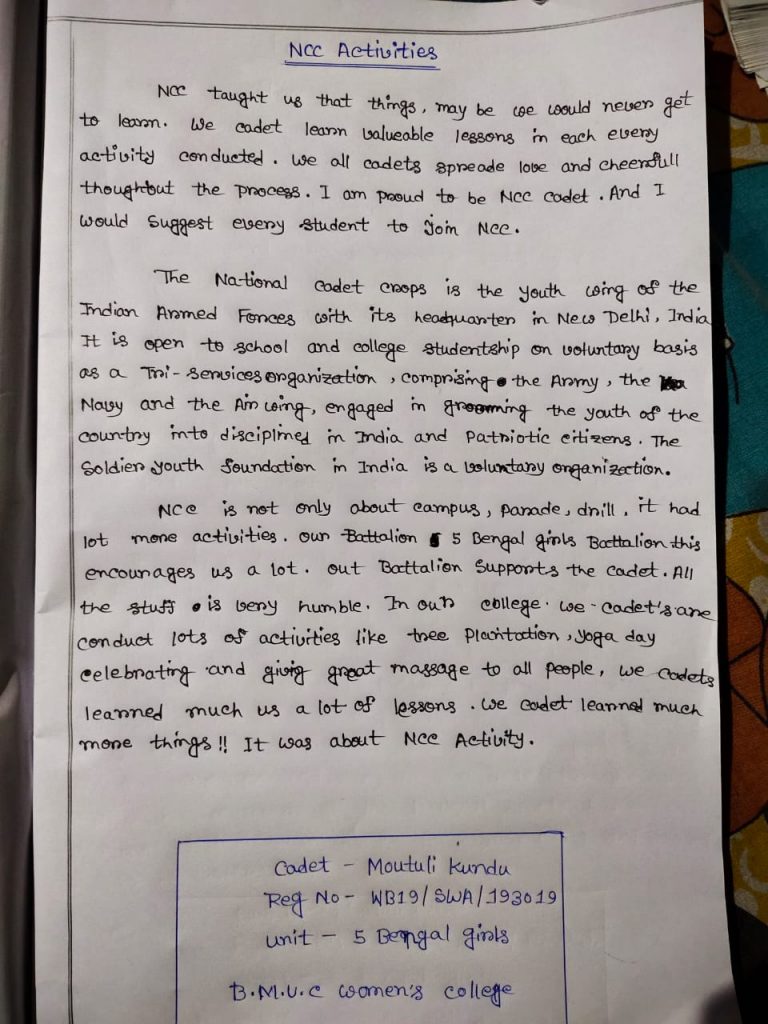 NCC Activities
NCC taught us that things, may be we would never get
to learn. We cadet learn valueable lessons in each every
activity conducted. We all cadets spreade love and cheerfull
thoughtout the process. I am proud to be NCC cadet. And I
would suggest every student to join NCC.
The National cadet crops is the youth wing of the
Indian Armed Forces with its headquarter in New Delhi, India
It is open to school and college studentship on voluntary basis
as a Tri-services organization, comprising the Army, the
Navy and the Air wing, engaged in grooming the youth of the
country into disciplined in India and Patriotic citizens. The
Soldier youth foundation in India is a voluntary organization.
NCC is not only about campus, parade, drill, it had
lot more activities. our Battalion 5 Bengal girls Battalion this
encourages us a lot. out Battalion Supports the cadet. All
the stuff is very humble. In our college we cadet's are
conduct lots of activities like tree Plantation, yoga day
celebrating and givig great massage to all people, we cadets
learned much us a lot of lessons. We cadet learned much
more things!! It was about NCC Activity.
Cadet - Moutuli Kundu
Reg No - WB19/SWA/193019
unit - 5 Bengal girls
B.M.U.C women's college